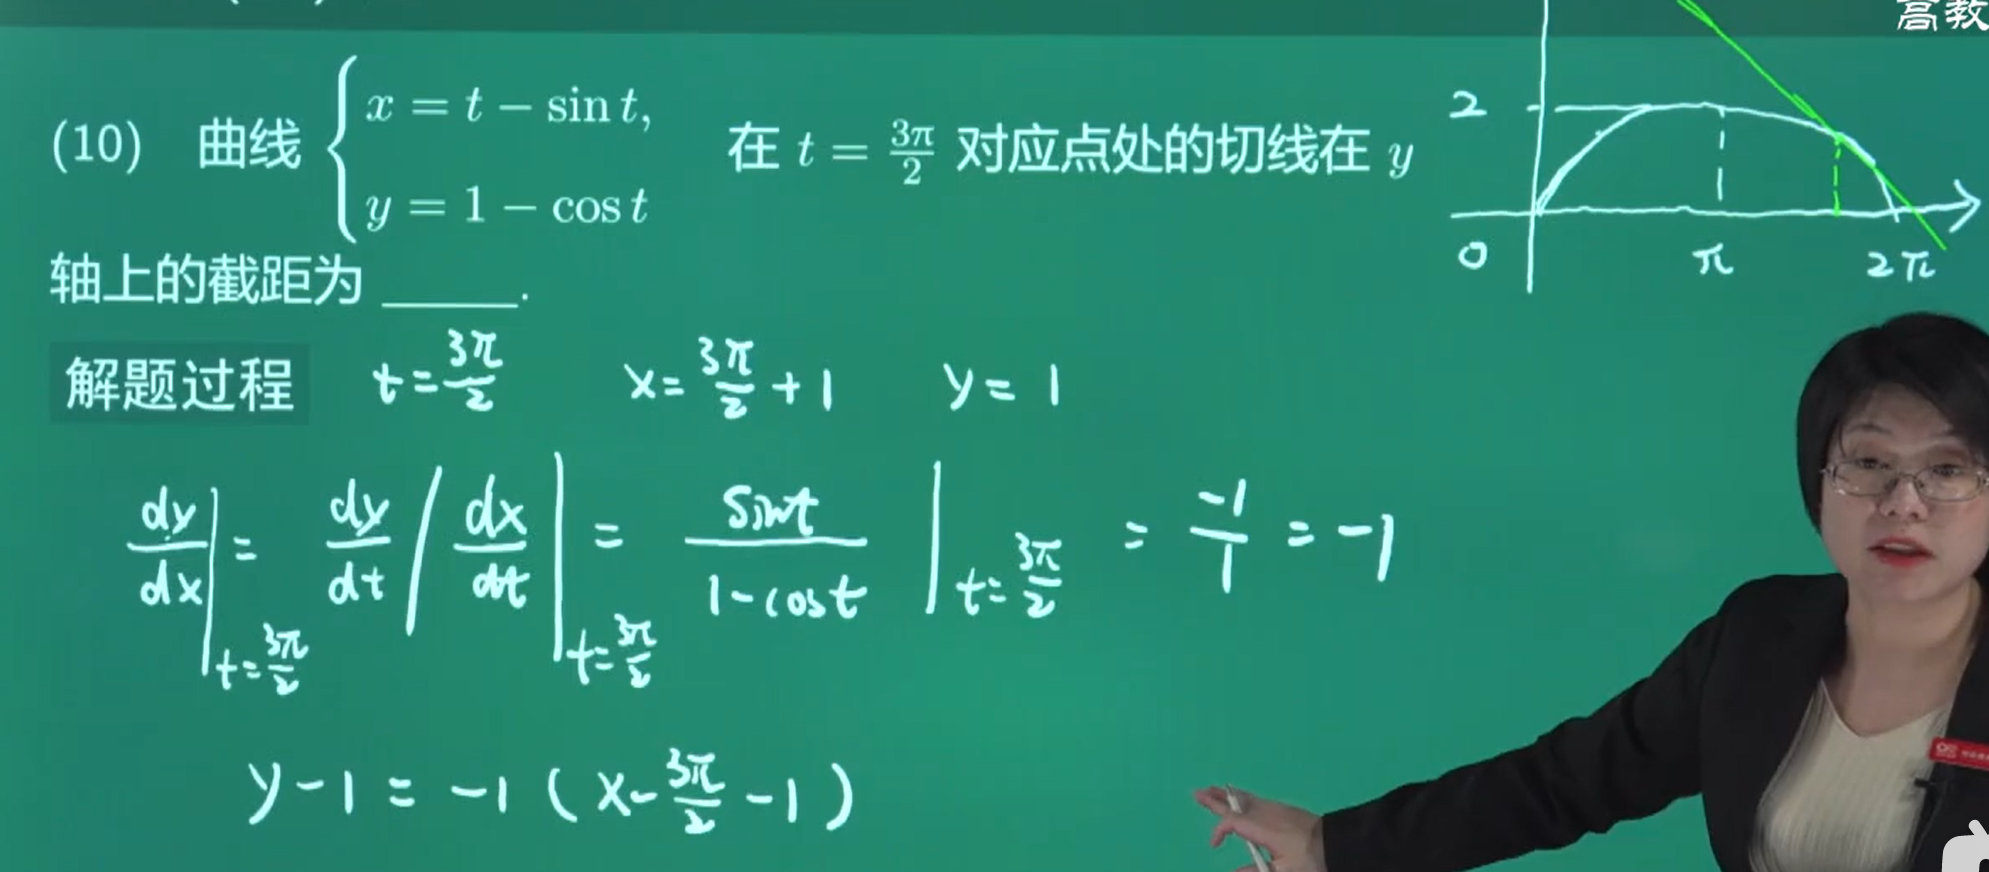 高教
(10) 曲线 { x = t − sin t, y = 1 − cos t 在 t = 3π/2 对应点处的切线在 y
轴上的截距为 ______.
2
0 π 2π
解题过程 t = 3π/2 x = 3π/2 + 1 y = 1
dy/dx |t=3π/2 = dy/dt / dx/dt |t=3π/2 = sint / 1-cost |t=3π/2 = -1/1 = -1
y-1 = -1 ( x - 3π/2 - 1 )